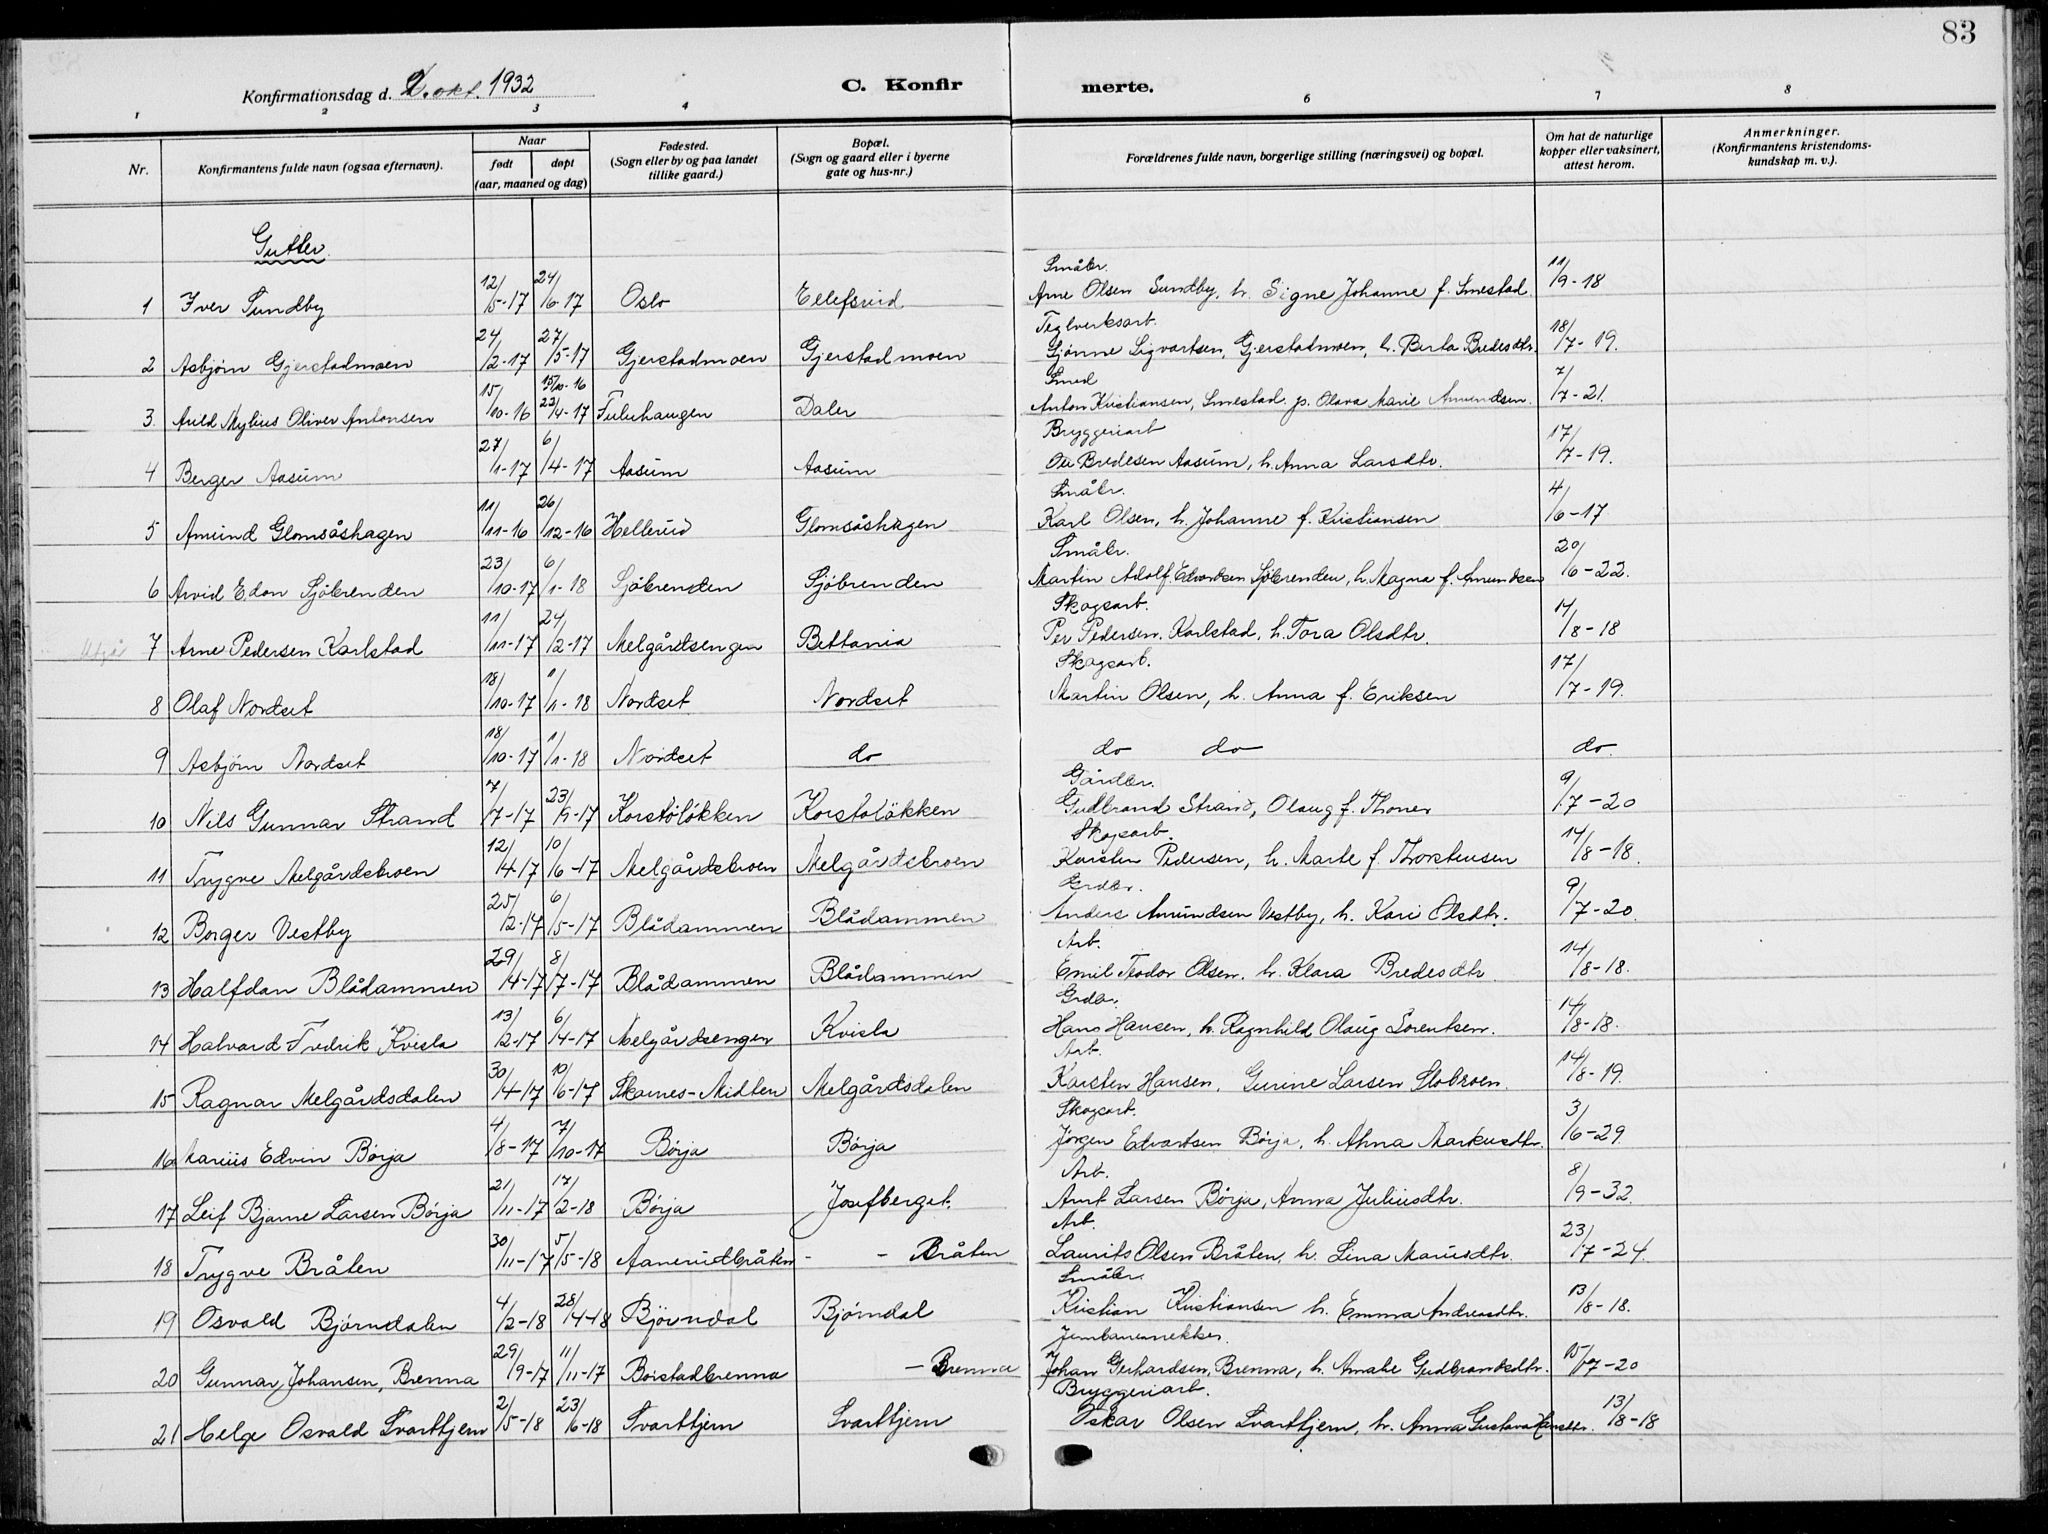 83
Konfirmationsdag d. 2. okt. 1932
C. Konfirmerte.
1 2 3 4 6 7 8
Nr. | Konfirmantens fulde navn (ogsaa efternavn). | Naar født | døpt (aar, maaned og dag) | Fødested. (Sogn eller by og paa landet tillike gaard.) | Bopæl. (Sogn og gaard eller i byerne gate og hus-nr.) | Forældrenes fulde navn, borgerlige stilling (næringsvei) og bopæl. | Om hat de naturlige kopper eller vaksinert, attest herom. | Anmerkninger. (Konfirmantens kristendoms-kundskap m. v.).
Gutter
1 Iver Sundby 12/5-17 24/6-17 Oslo Ellefsrud Småbr. Arne Olsen Sundby, h. Signe Johanne f. Smestad 11/9-18
2 Asbjørn Gjerstadmoen 24/2-17 27/5-17 Gjerstadmoen Gjerstadmoen Teglverksarb. Gjønne Sigvartsen, Gjerstadmoen, h. Berta Bredesdtr. 18/7-19.
3. Arild Mylius Oliver Antonsen 15/10-16 15/10-16 22/4-17 Tuluhaugen Daler Smed Anton Kristiansen, Smestad. p. Olava Marie Amundsen. 7/7-21.
4 Berger Aasum 27/1-17 6/4-17 Aasum Aasum Bryggeriarb Ole Bredesen Aasum, h. Anna Larsdtr. 17/7-19.
5 Amund Glomsåshagen 11/11-16 26/12-16 Hellerud Glomsåshagen Småbr. Karl Olsen, h. Johanne f. Kristiansen 4/6-17
6 Arvid Edon Sjöbrenden 23/10-17 6/1-18 Sjöbrenden Sjöbrenden Småbr. Martin Adolf Edvardsen Sjöbrenden, h. Magna f. Amundsen 20/6-22.
7 Arne Pedersen Karlstad 11/11-17 24/2-17 Melgårdsengen Bettania Skogsarb. Per Pedersen Karlstad, h. Tora Olsdtr. 14/8-18
8 Olaf Nordset 18/10-17 1/1-18 Nordset Nordset Skogsarb. Martin Olsen, h. Anna f. Eriksen 17/7-19.
9 Asbjörn Nordset 18/10-17 1/1-18 Nordset do do do do.
10 Nils Gunnar Strand 7/7-17 23/9-17 Korstölökken Korstolökken Gårdbr. Gudbrand Strand, Olaug f. Thoner 9/7-20
11 Trygve Melgårdsbroen 12/4-17 10/6-17 Melgårdsbroen Melgårdsbroen Skogsarb. Karsten Pedersen, h. Marte f. Thorstensen 14/8-18.
12 Borger Vestby 25/2-17 6/5-17 Blådammen Blådammen Grdbr. Anders Amundsen Vestby, h. Kari Olsdtr. 9/7-20.
13 Halfdan Blådammen 29/4-17 8/7-17 Blådammen Blådammen Arb. Emil Teodor Olsen. h. Klara Bredesdtr 14/8-18.
14 Halvard Fredrik Kvisla 13/2-17 6/4-17 Melgårdsengen Kvisla Grdbr. Hans Hansen, h. Ragnhild Olaug Sorentsen. 14/8-18.
15 Ragnar Melgårdsdalen 30/4-17 10/6-17 Skarnes-Midten Melgårdsdalen Arb. Karsten Hansen. Gurine Larsen Slobroen. 14/8-19.
16 Marius Edvin Börja 4/8-17 7/10-17 Börja Börja Skogsarb. Jörgen Edvartsen Börja, h. Alma Markusdtr. 3/6-29.
17 Leif Bjarne Larsen Börja 21/11-17 17/2-18 Börja Josefberget. Arb. Arnt Larsen Börja, Anna Juliusdtr. 8/9-32.
18 Trygve Bråten 30/11-17 5/5-18 Aanerudbråten - - Bråten Arb. Laurits Olsen Bråten, h. Lina Mariusdtr. 23/7-24.
19 Osvald Björndalen 4/2-18 28/4-18 Björndal Bjørndal Småbr. Kristian Kristiansen h. Emma Andreasdtr. 13/8-18.
20 Gunnar Johansen, Brenna 29/9-17 11/11-17 Borstadbrenna - Brenna Jernbanesnekker. Johan Gerhardsen, Brenna, h. Amalie Gudbrandsdtr. 15/7-20
21 Helge Osvald Svarttjern 2/5-18 23/6-18 Svarttjern Svarttjern Bryggeriarb. Oskar Olsen Svarttjern, h. Anna Gustava Hansdtr. 13/8-18